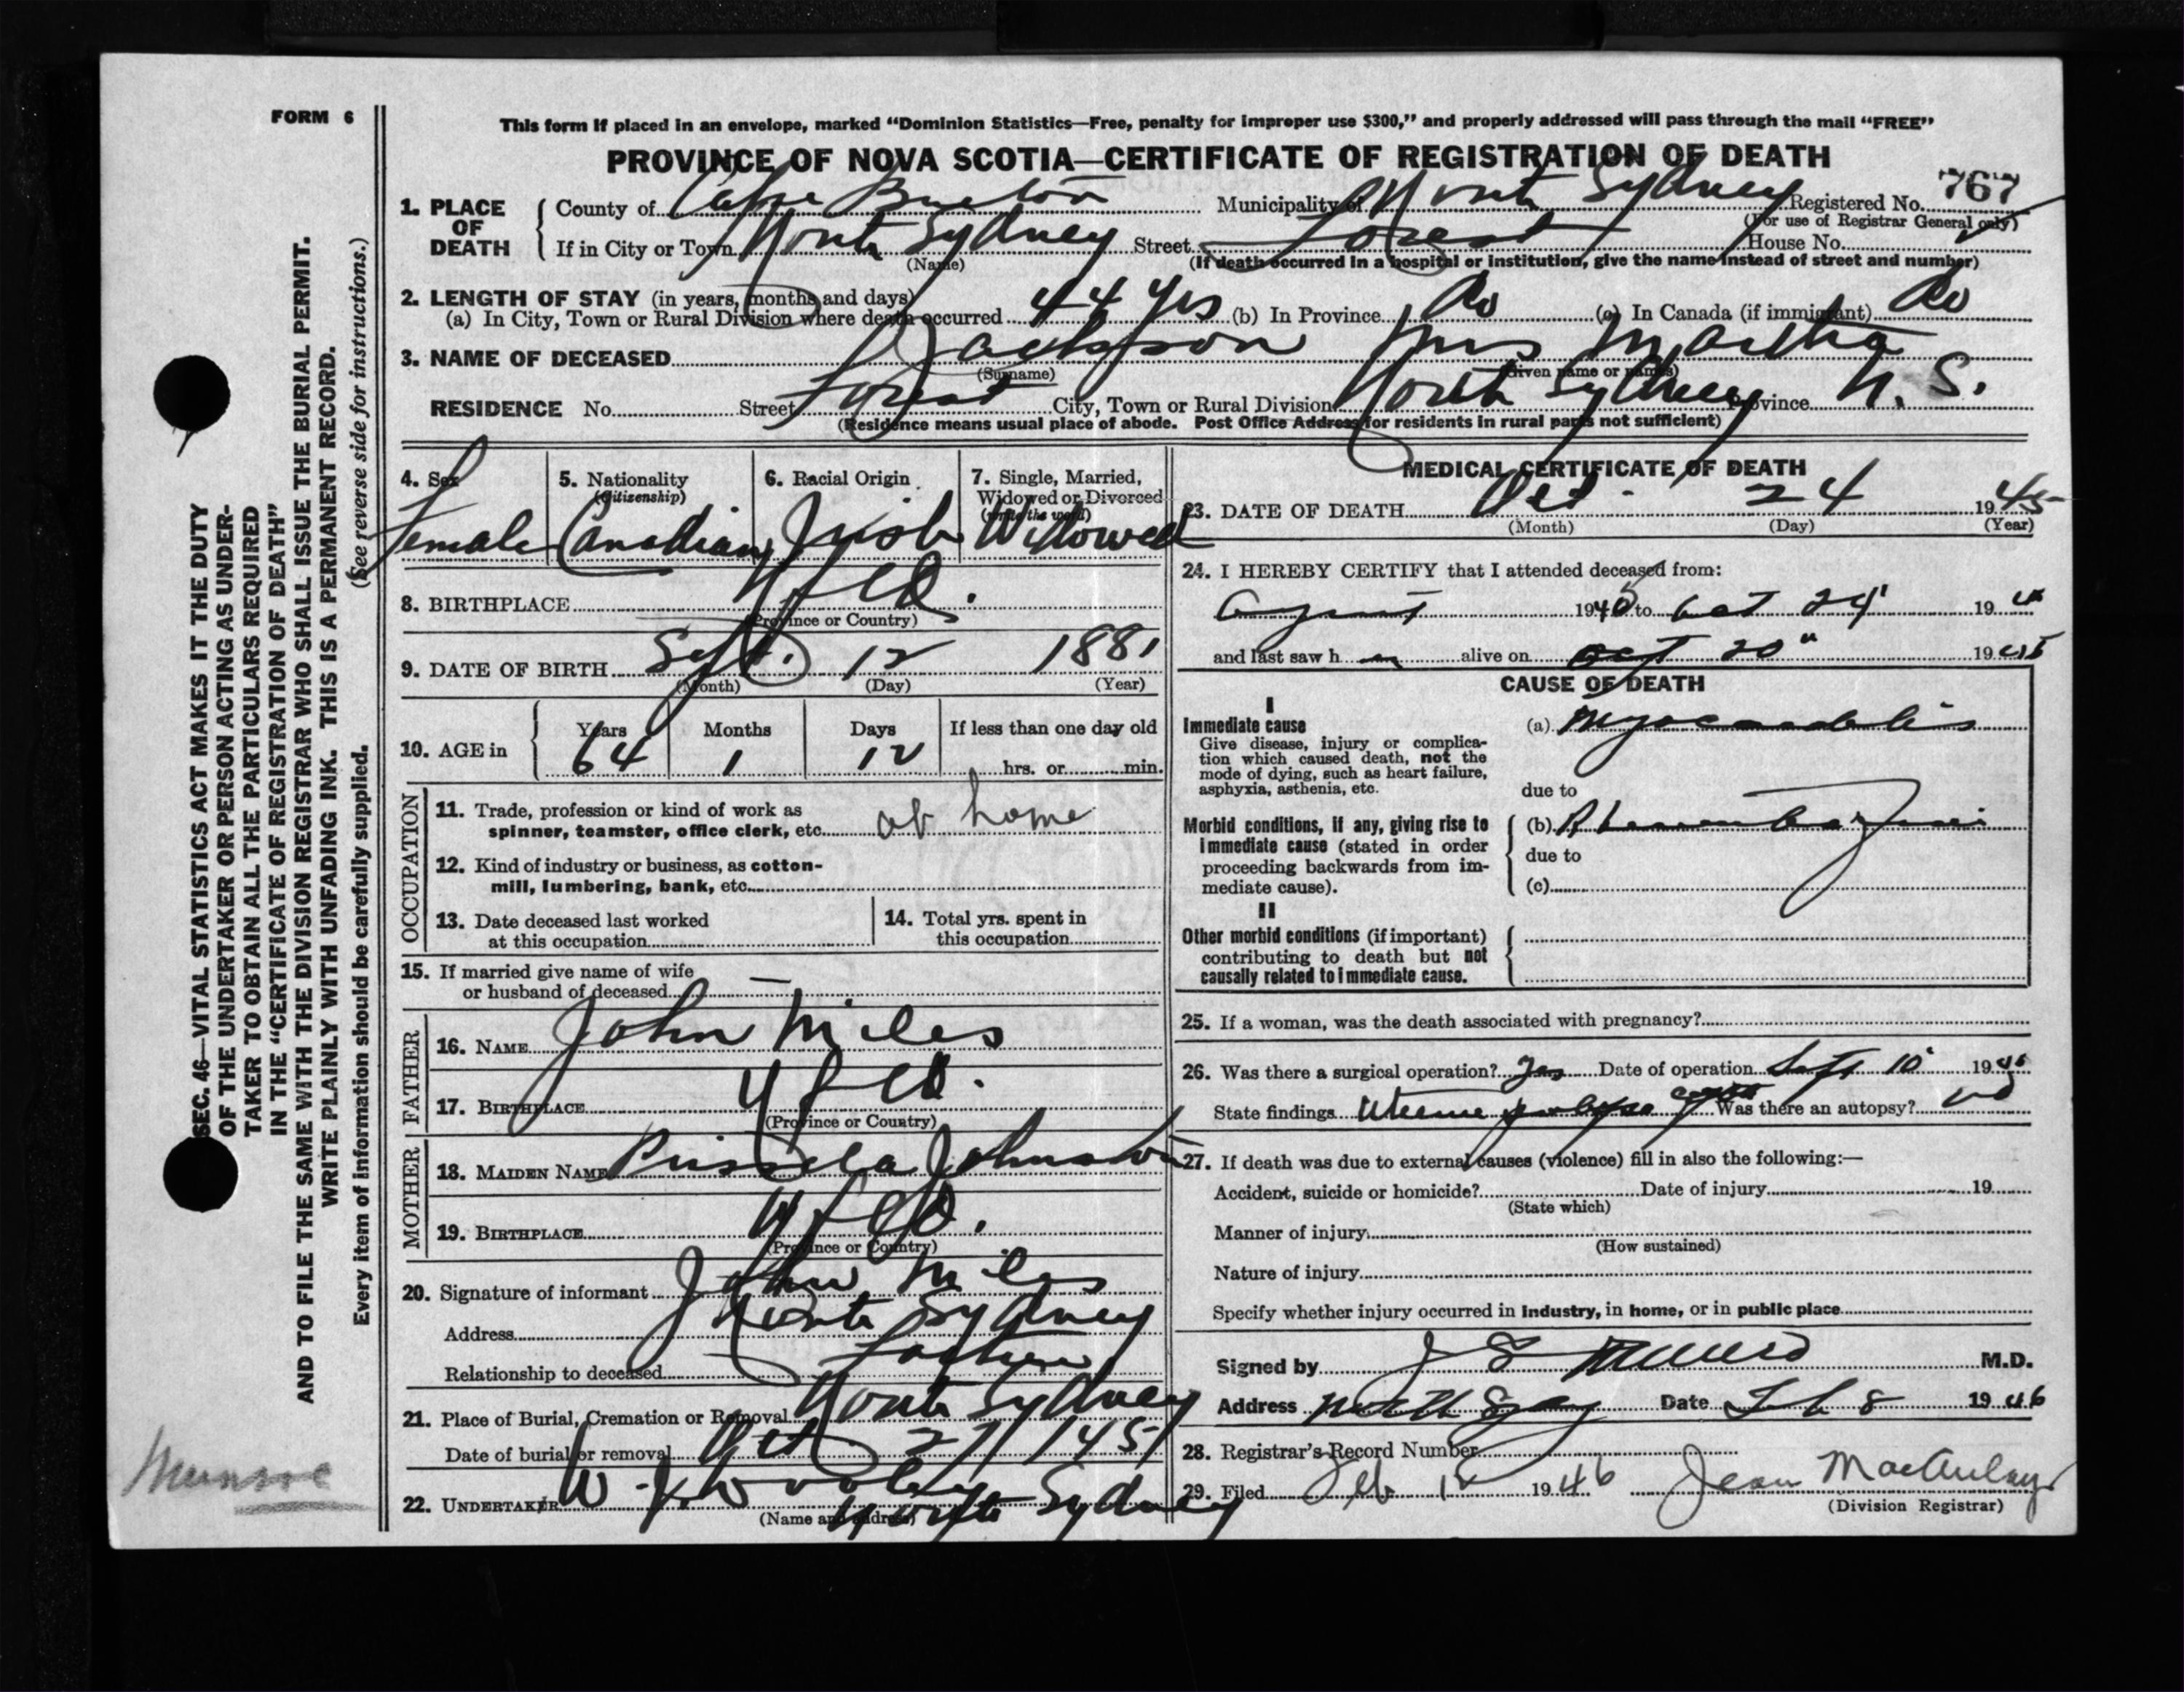 FORM 6
This form if placed in an envelope, marked "Dominion Statistics—Free, penalty for improper use $300," and properly addressed will pass through the mail "FREE"
PROVINCE OF NOVA SCOTIA—CERTIFICATE OF REGISTRATION OF DEATH
767
1. PLACE OF DEATH County of Cape Breton Municipality of North Sydney Registered No.
(For use of Registrar General only)
If in City or Town North Sydney Street Forest House No.
(Name) (If death occurred in a hospital or institution, give the name instead of street and number)
2. LENGTH OF STAY (in years, months and days)
(a) In City, Town or Rural Division where death occurred 44 yrs (b) In Province Do (c) In Canada (if immigrant) Do
3. NAME OF DECEASED Jackson Mrs Martha
(Surname) (Given name or names)
RESIDENCE No. Street Forest City, Town or Rural Division North Sydney Province N. S.
(Residence means usual place of abode. Post Office Address for residents in rural parts not sufficient)
4. Sex 5. Nationality 6. Racial Origin 7. Single, Married,
(Citizenship) Widowed or Divorced
(write the word)
Female Canadian Irish Widowed
8. BIRTHPLACE Nfld.
(Province or Country)
9. DATE OF BIRTH Sept. 12 1881
(Month) (Day) (Year)
10. AGE in Years Months Days If less than one day old
64 1 12 hrs. or min.
OCCUPATION
11. Trade, profession or kind of work as
spinner, teamster, office clerk, etc. at home
12. Kind of industry or business, as cotton-
mill, lumbering, bank, etc.
13. Date deceased last worked
at this occupation
14. Total yrs. spent in
this occupation
15. If married give name of wife
or husband of deceased —
FATHER
16. NAME John Miles
17. BIRTHPLACE Nfld.
(Province or Country)
MOTHER
18. MAIDEN NAME Johnston
19. BIRTHPLACE Nfld.
(Province or Country)
20. Signature of informant John Miles
Address North Sydney
Relationship to deceased
21. Place of Burial, Cremation or Removal North Sydney
Date of burial or removal Oct 27/45
22. UNDERTAKER W. J. Dooley
(Name and address) North Sydney
MEDICAL CERTIFICATE OF DEATH
23. DATE OF DEATH Oct. 24 1945
(Month) (Day) (Year)
24. I HEREBY CERTIFY that I attended deceased from:
August 1945 to Oct 24 19
and last saw h alive on Oct 20" 1945
CAUSE OF DEATH
I
Immediate cause
Give disease, injury or complica-
tion which caused death, not the
mode of dying, such as heart failure,
asphyxia, asthenia, etc.
(a) Myocarditis
due to
Morbid conditions, if any, giving rise to
immediate cause (stated in order
proceeding backwards from im-
mediate cause).
(b)
due to
(c)
II
Other morbid conditions (if important)
contributing to death but not
causally related to immediate cause.
25. If a woman, was the death associated with pregnancy?
26. Was there a surgical operation? Yes Date of operation Sept 10 1945
State findings Uterine Was there an autopsy? no
27. If death was due to external causes (violence) fill in also the following:—
Accident, suicide or homicide? Date of injury 19
(State which)
Manner of injury
(How sustained)
Nature of injury
Specify whether injury occurred in Industry, in home, or in public place
Signed by J S Munro M.D.
Address North Sydney Date Feb 8 1946
28. Registrar's Record Number
29. Filed Feb 1946 Jean MacAulay
(Division Registrar)
SEC. 46—VITAL STATISTICS ACT MAKES IT THE DUTY
OF THE UNDERTAKER OR PERSON ACTING AS UNDER-
TAKER TO OBTAIN ALL THE PARTICULARS REQUIRED
IN THE "CERTIFICATE OF REGISTRATION OF DEATH"
AND TO FILE THE SAME WITH THE DIVISION REGISTRAR WHO SHALL ISSUE THE BURIAL PERMIT.
WRITE PLAINLY WITH UNFADING INK. THIS IS A PERMANENT RECORD.
Every item of information should be carefully supplied. (See reverse side for instructions.)
Munroe